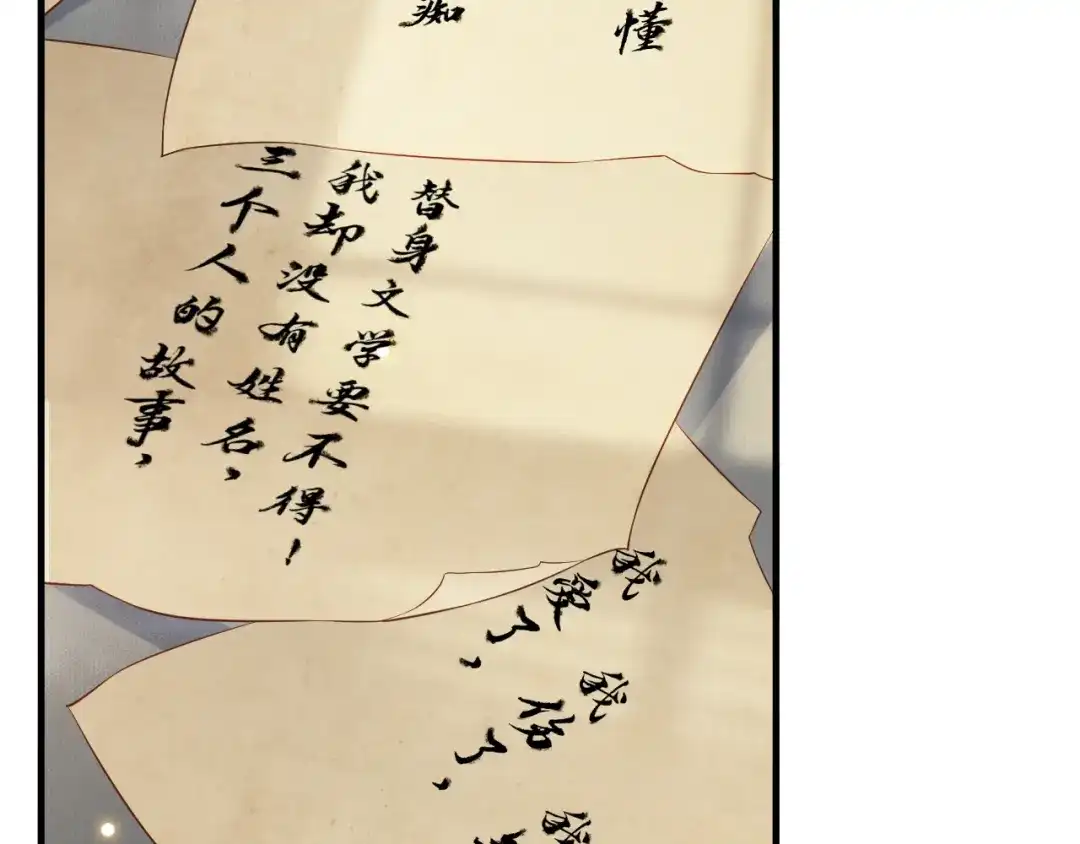 痴
懂
三个人的故事，
我却没有姓名，
替身文学要不得！
我 了，
我伤了，
我